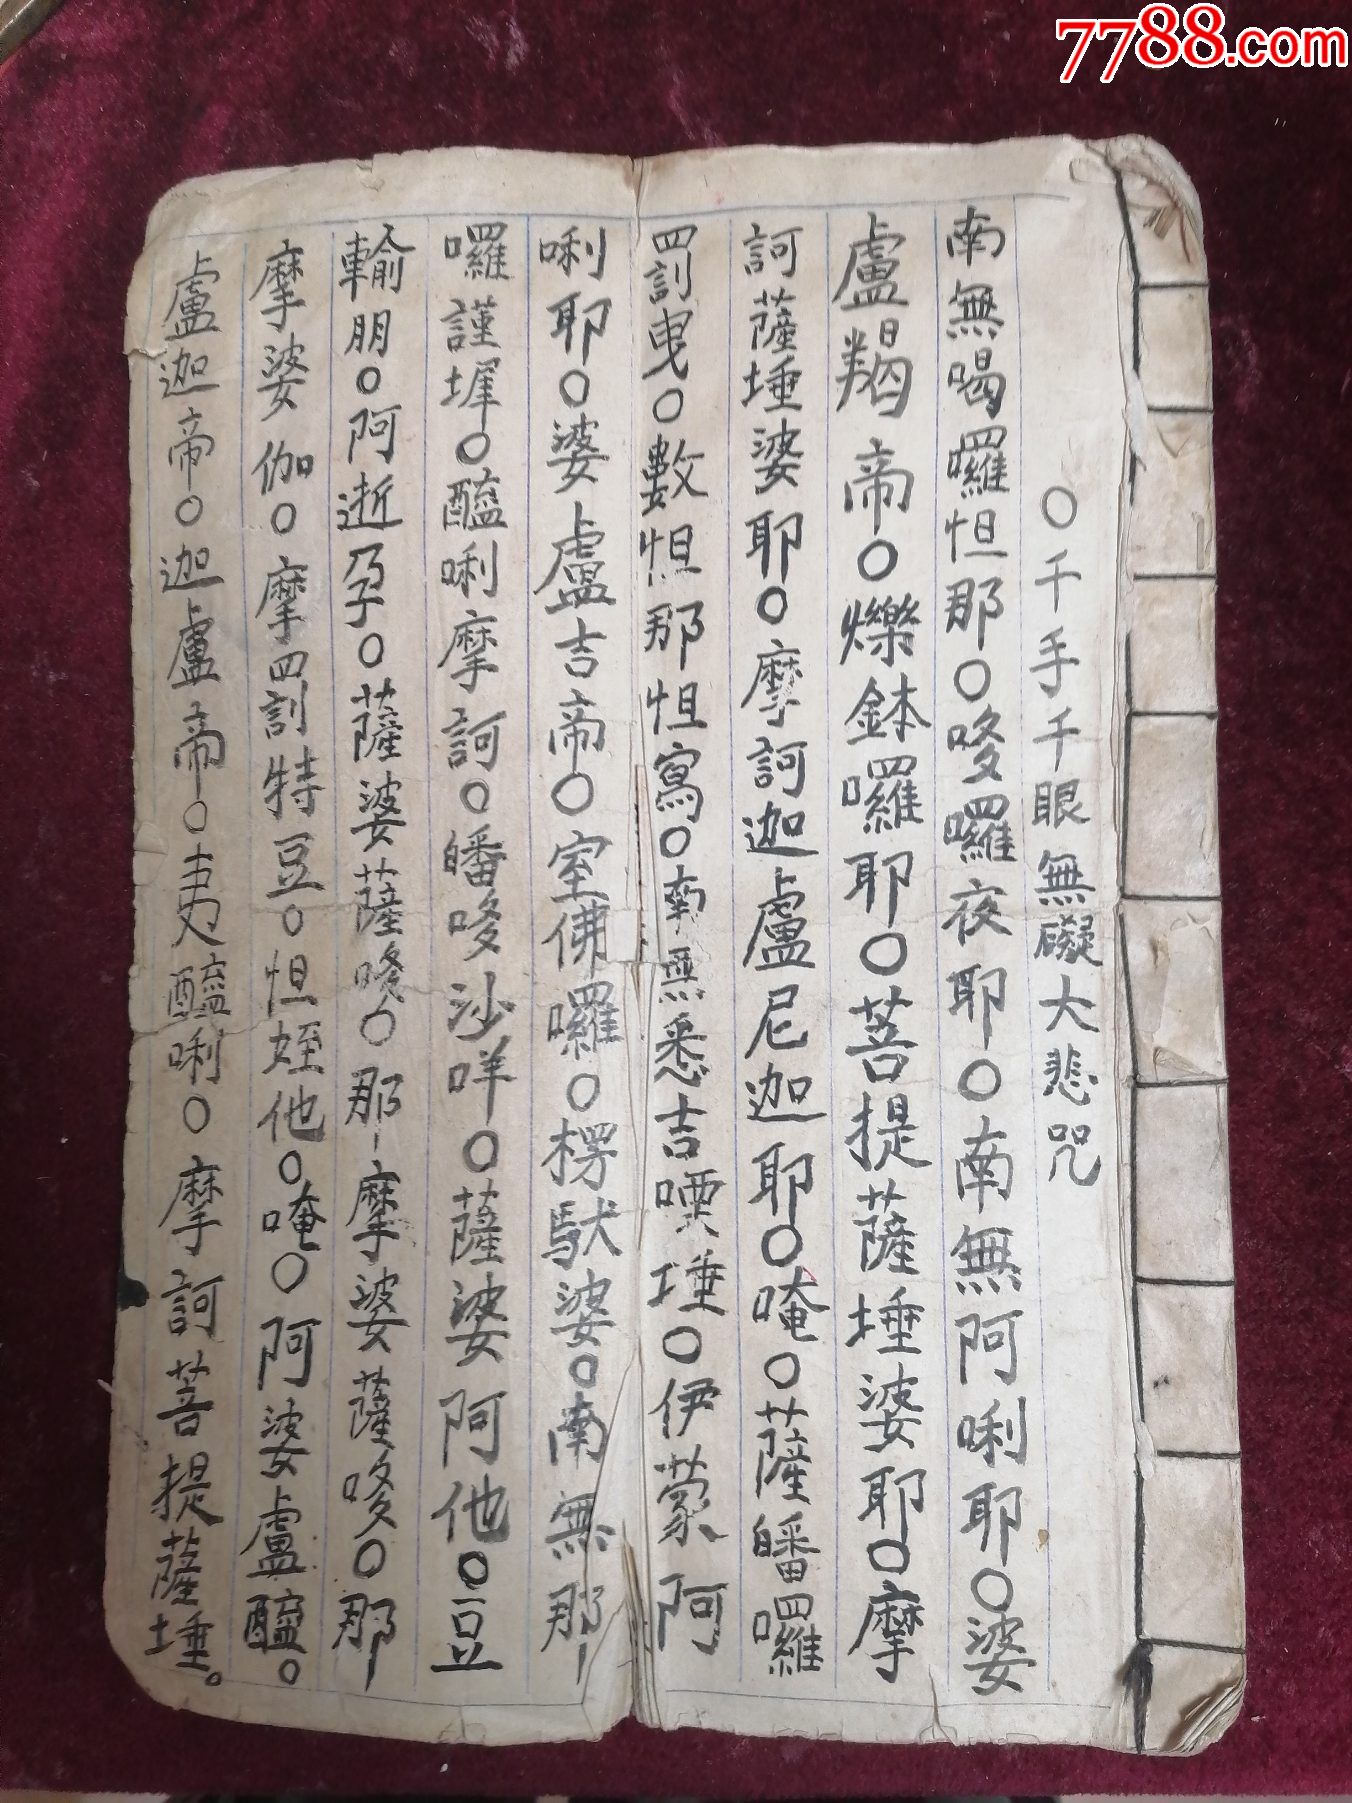 7788.com
○千手千眼無礙大悲咒
南無喝囉怛那○哆囉夜耶○南無阿唎耶○婆
盧羯帝○爍鉢囉耶○菩提薩埵婆耶○摩
訶薩埵婆耶○摩訶迦盧尼迦耶○唵○薩皤囉
罰曳○數怛那怛寫○南無悉吉㗚埵○伊蒙阿
唎耶○婆盧吉帝○室佛囉○楞馱婆○南無那
囉謹墀○醯唎摩訶○皤哆沙咩○薩婆阿他○豆
輸朋○阿逝孕○薩婆薩哆○那摩婆薩哆○那
摩婆伽○摩罰特豆○怛姪他○唵○阿婆盧醯。
盧迦帝○迦盧帝○夷醯唎○摩訶菩提薩埵。